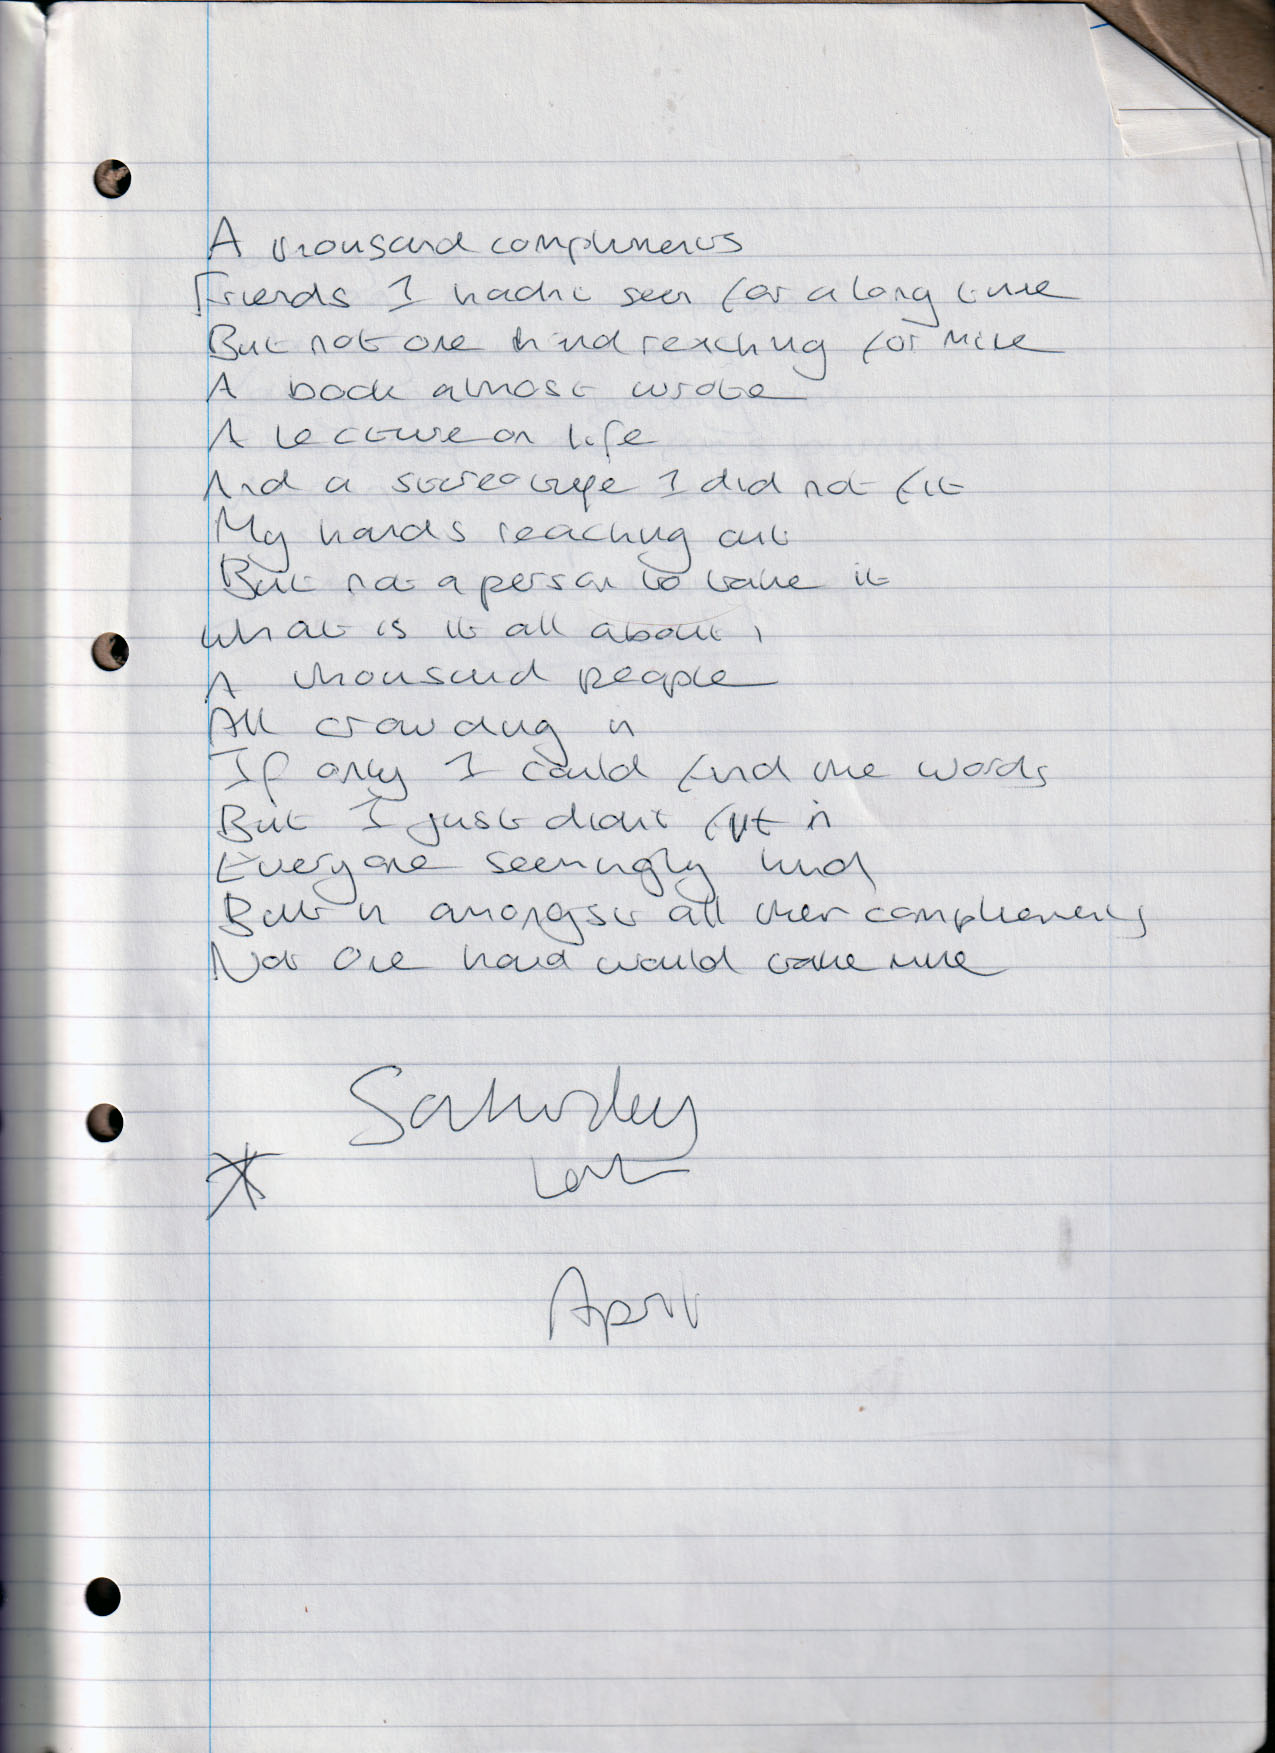 A thousand compliments
Friends I hadnt seen for a long time
But not one hand reaching for mine
A book almost wrote
A lecture on life
And a stereotype I did not fit
My hands reaching out
But not a person to take it
What is it all about
A thousand people
All crowding in
If only I could find the words
But I just didnt fit in
Everyone seemingly kind
But in amongst all their compliments
Not One hand would take mine
Saturday
April